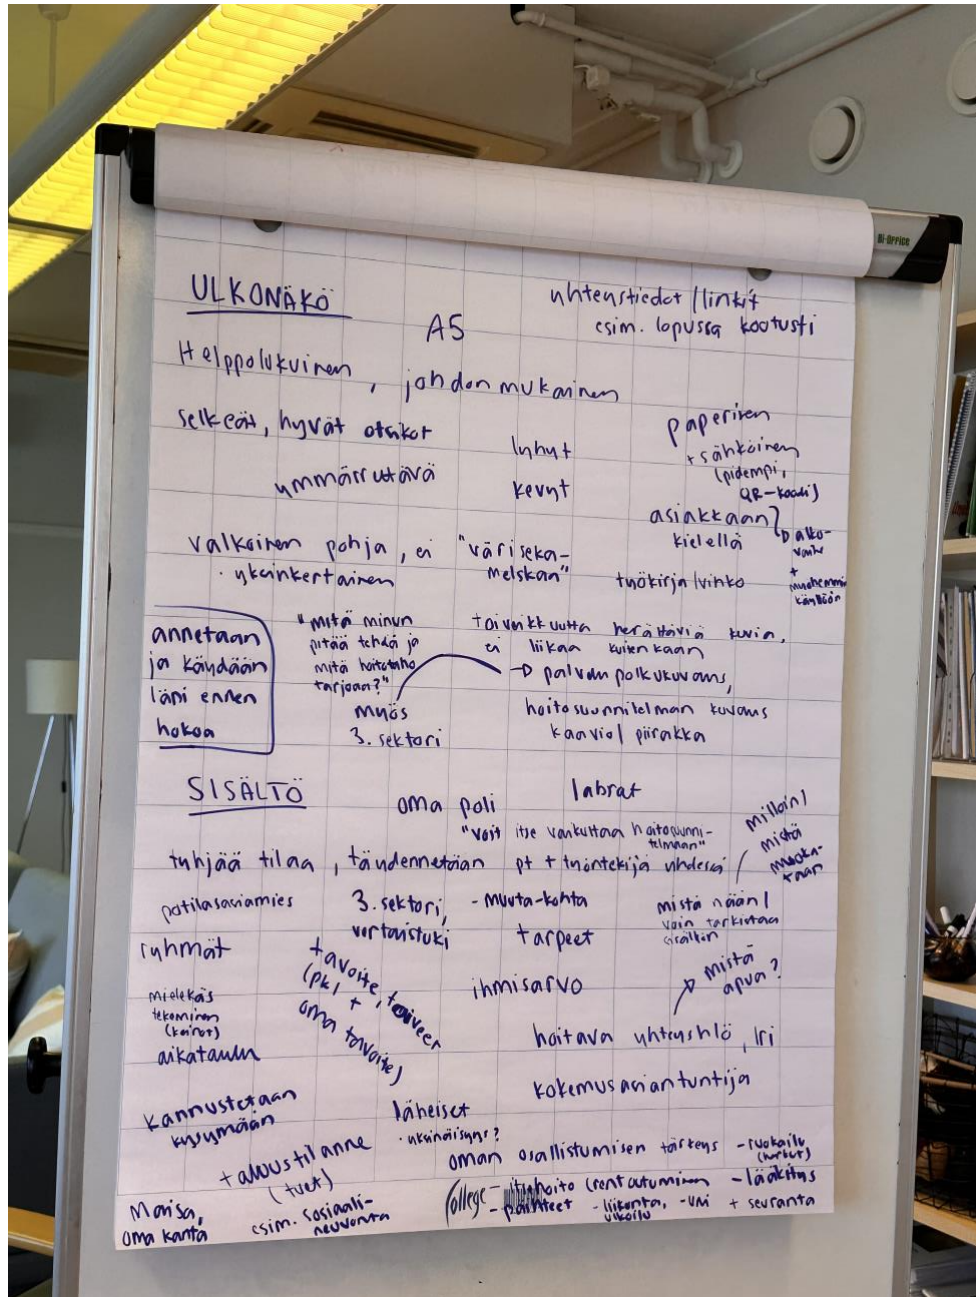 Bi-Office
ULKONÄKÖ
yhteystiedot / linkit
esim. lopussa kootusti
A5
Helppolukuinen, johdonmukainen
selkeät, hyvät otsikot
lyhyt
paperinen
+ sähköinen
(pidempi,
QR-koodi)
ymmärrettävä
kevyt
asiakkaan
kielellä
valkoinen pohja, ei "värisekamelskaa"
· yksinkertainen
työkirja/vihko
+
myöhemmin
käyttöön
annetaan
ja käydään
läpi ennen
hokoa
"mitä minun
pitää tehdä ja
mitä hoitotaho
tarjoaa?"
myös
3. sektori
toiveikkuutta herättäviä kuvia,
ei liikaa kuitenkaan
→ palvelupolkukuvaus,
hoitosuunnitelman kuvaus
kaavio / piirakka
SISÄLTÖ
oma poli
labrat
"voit itse vaikuttaa hoitosuunni-
telmaan"
milloin /
mistä
muoka-
taan
tyhjää tilaa, täydennetään pt + työntekijä yhdessä
potilasasiamies
3. sektori,
vertaistuki
- muuta-kohta
tarpeet
mistä nään /
voin tarkistaa
ryhmät
tavoite, toiveet
(pkl +
oma tavoite)
ihmisarvo
mistä
apua?
mielekäs
tekeminen
(keinot)
aikataulu
hoitava yhteyshlö, lri
kokemusasiantuntija
kannustetaan
kysymään
läheiset
· yksinäisyys?
oman osallistumisen tärkeys
- ruokailu
+ taloustilanne
(tuet)
- itsehoito (rentoutuminen
- lääkitys
- päihteet - liikunta, - uni + seuranta
ulkoilu
Maisa,
oma kanta
esim. sosiaali-
neuvonta